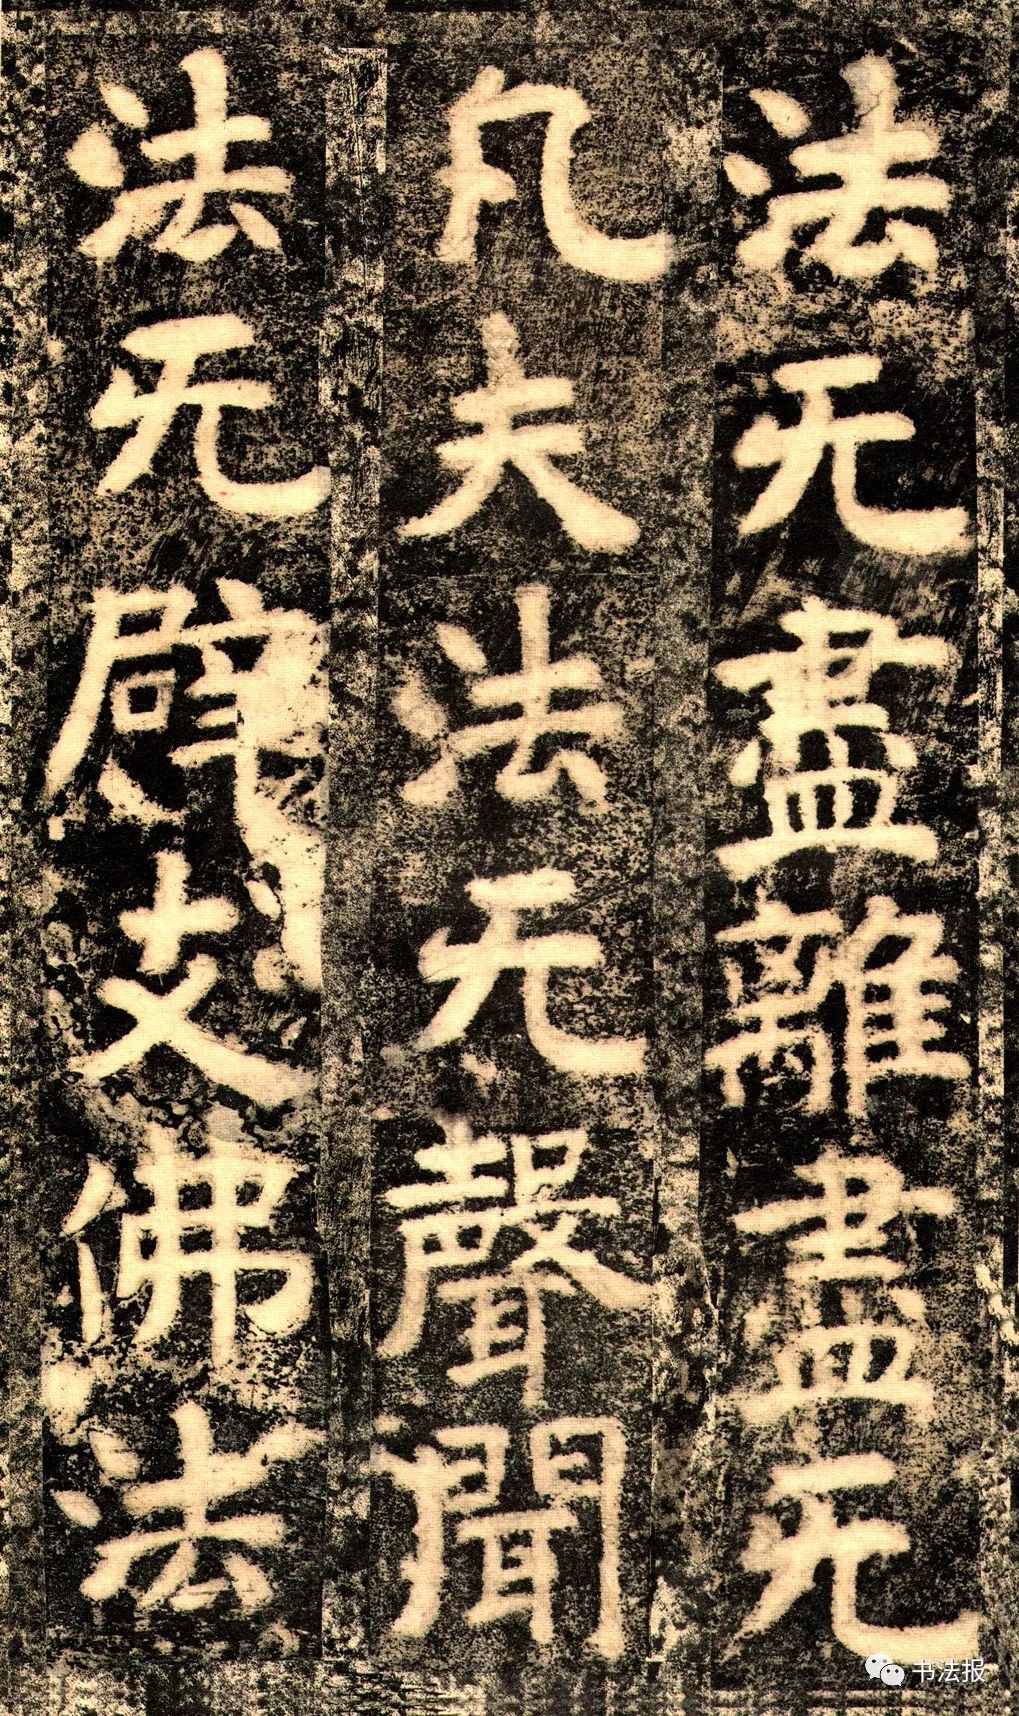 法无盡離盡无
凡夫法无聲聞
法无辟支佛法
书法报